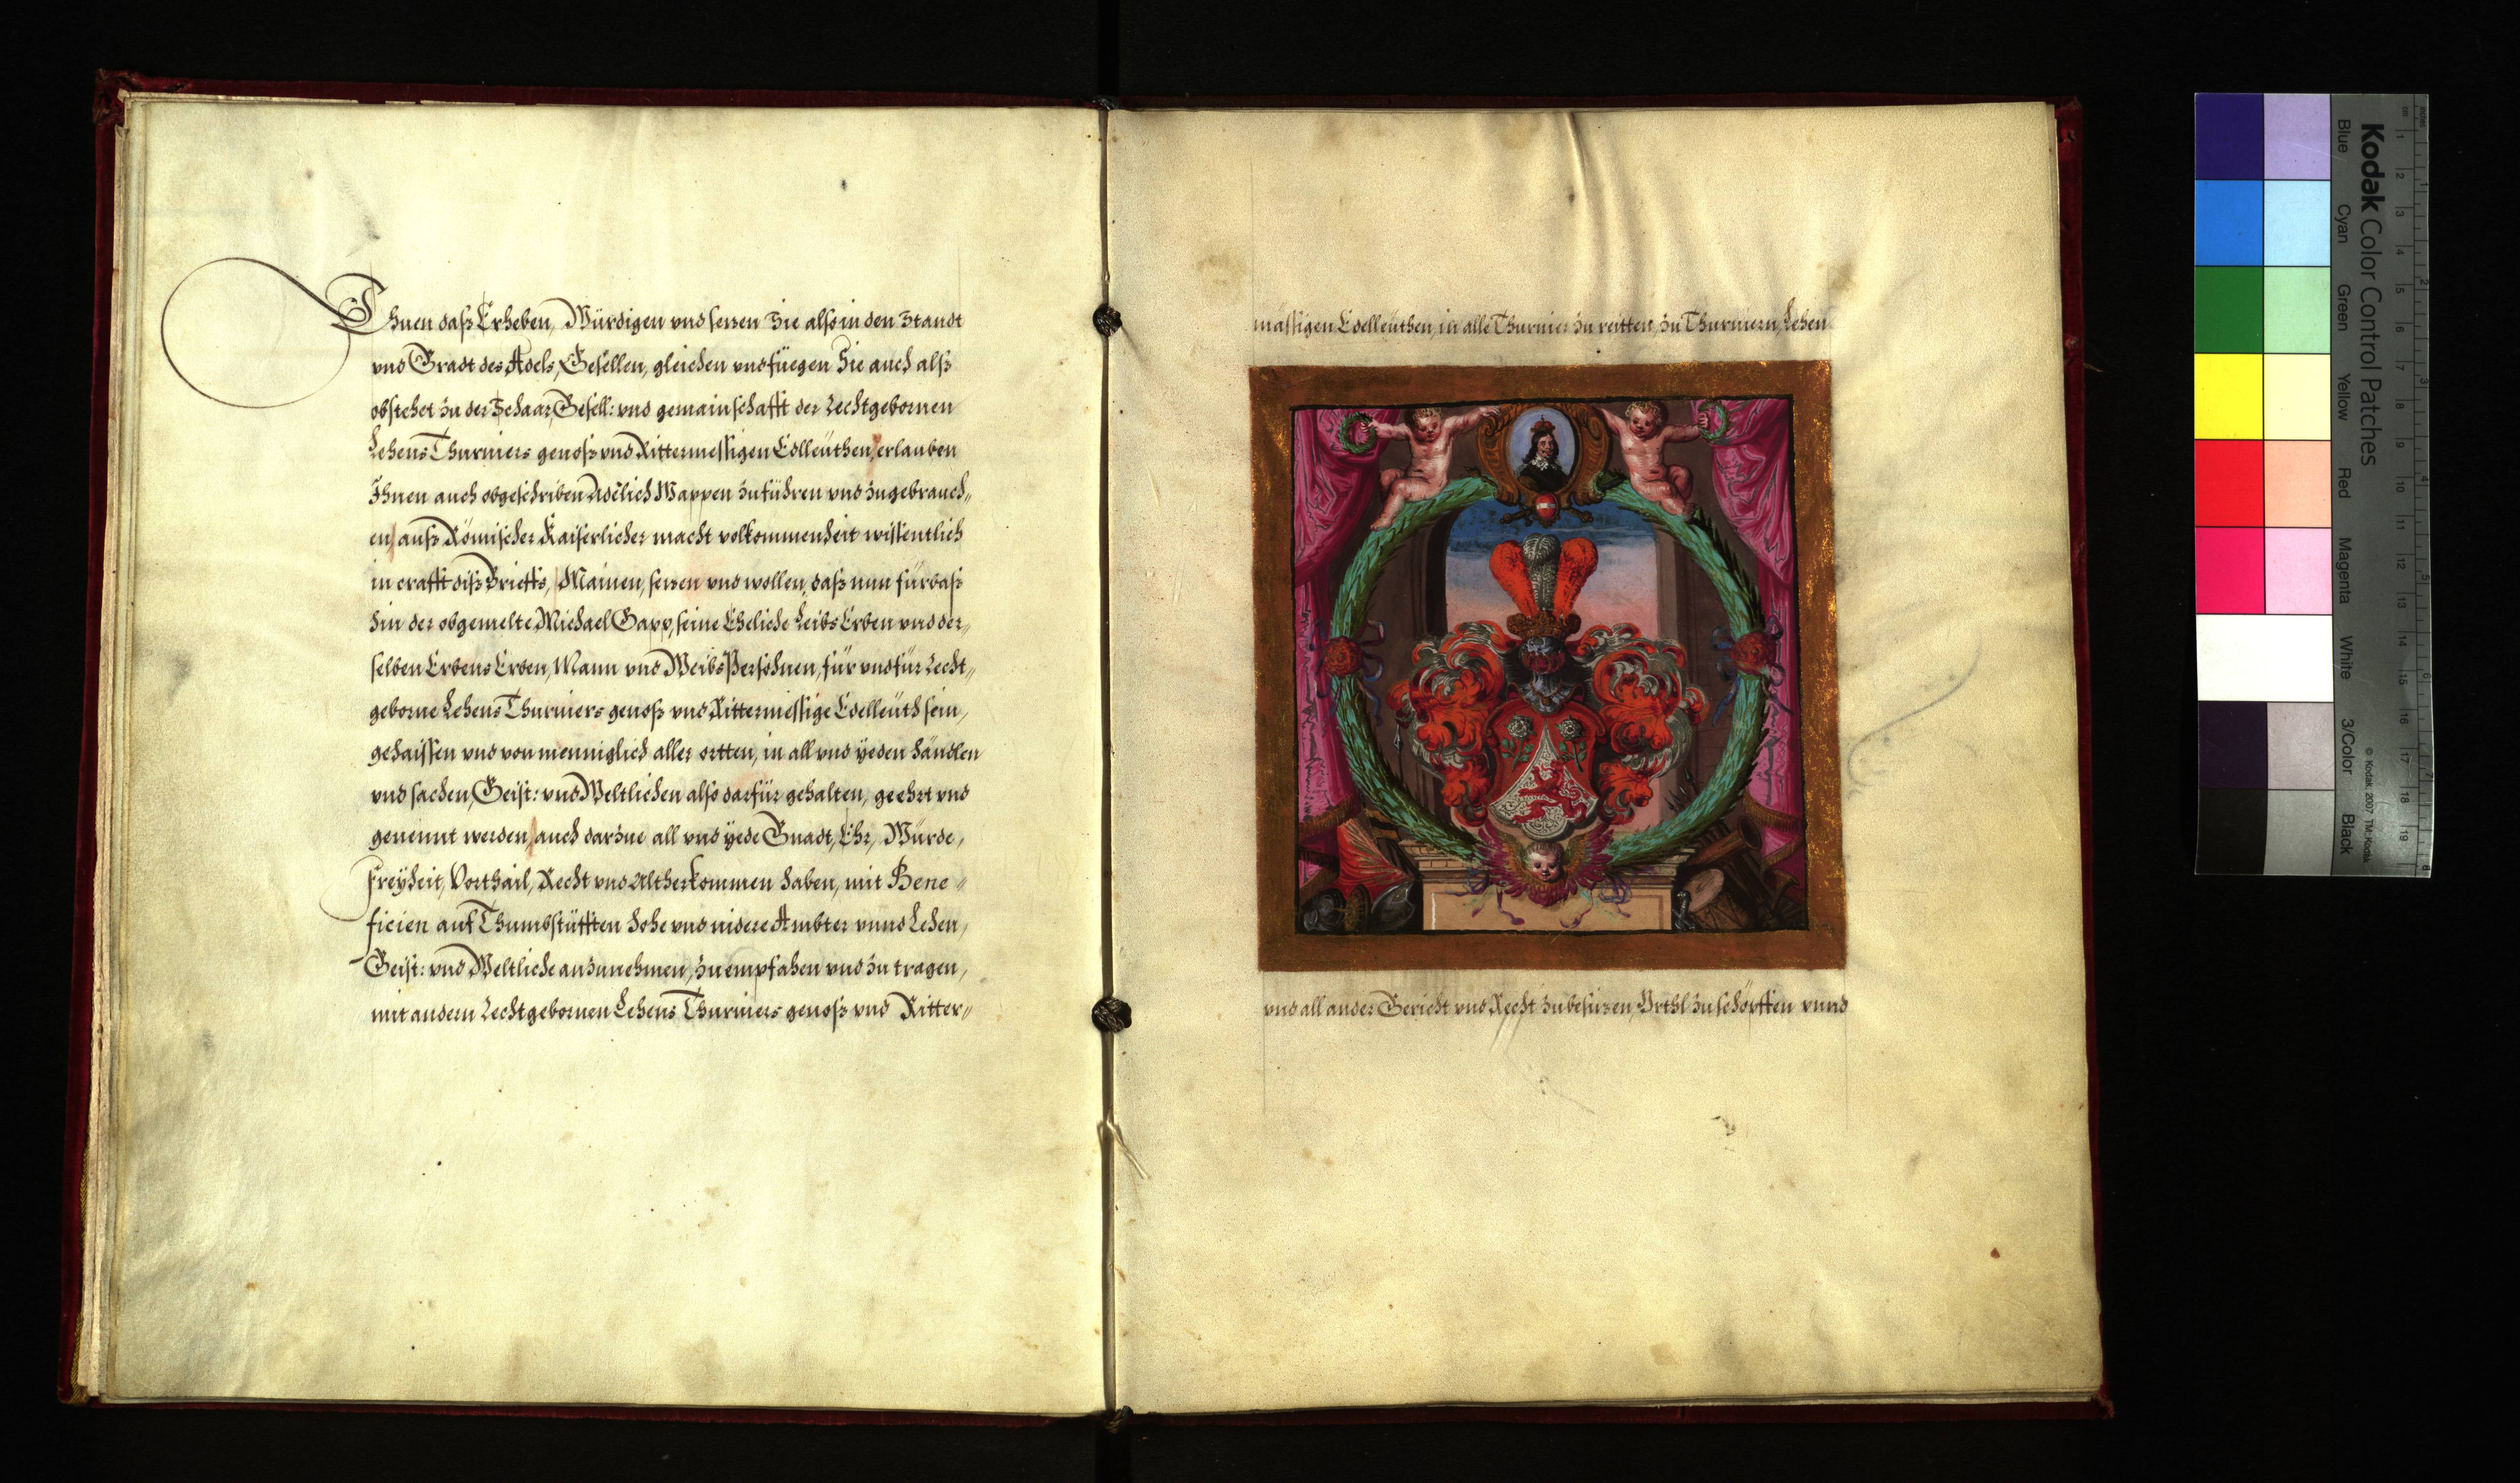 Ihnen daß Erheben, Würdigen vnd sezen Sie also in den Standt
vnd Gradt des Adels, Gesellen, gleichen vnd füegen Sie auch alß
obstehet zu der Schaar, Gesell: vnd gemainschafft der Rechtgebornen
Lehens Thurniers genoß vnd Rittermessigen Edlleüthen, erlauben
Ihnen auch obgeschriben Adelich Wappen zuführen vnd zugebrauch„
en, auß Römischer Kaiserlicher macht volkommenheit wissentlich
in crafft diß Brieffs, Mainen, sezen vnd wollen, daß nun fürbaß
hin der obgemelte Michael Gapp, seine Eheliche Leibs Erben vnd der„
selben Erbens Erben, Mann vnd Weibs Persohnen, für vnd für Recht„
geborne Lehens Thurniers genoß vnd Rittermessige Edelleüth sein,
gehaissen vnd von menniglich aller ortten, in all vnd yeden händlen
vnd sachen, Geist: vnd Weltlichen also darfür gehalten, geehrt vnd
genennt werden, auch darzue all vnd yede Gnadt, Ehr, Würde,
Freyheit, Vorthail, Recht vnd Altherkommen haben, mit Bene„
ficien auf Thumbstüfften hohe vnd nidere Ambter vnnd Lehen,
Geist: vnd Weltliche anzunehmen, zu empfahen vnd zu tragen,
mit andern Rechtgebornen Lehens Thurniers genoß vnd Ritter„
mässigen Edelleüthen, in alle Thurnier zu reitten, zu Thurniern, Lehen
vnd all ander Gericht vnd Recht zubesizen, Vrthl zu schöpffen vnnd
Kodak Color Control Patches
Blue Cyan Green Yellow Red Magenta White 3/Color Black
© Kodak, 2007 TM: Kodak
cm 1 2 3 4 5 6 7 8 9 10 11 12 13 14 15 16 17 18 19
inches 1 2 3 4 5 6 7 8